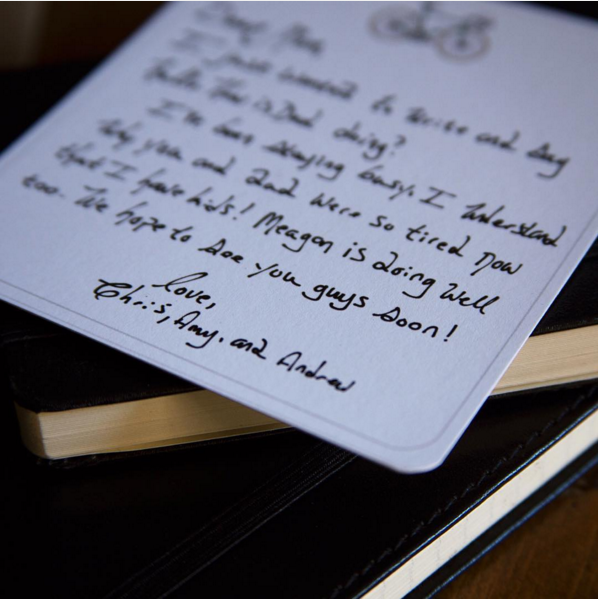 Dear Mom,
I just wanted to write and say
hello. How is Dad doing?
I've been staying busy. I understand
why you and Dad were so tired now
that I have kids! Meagan is doing well
too. We hope to see you guys soon!
love,
Chris, Amy, and Andrew